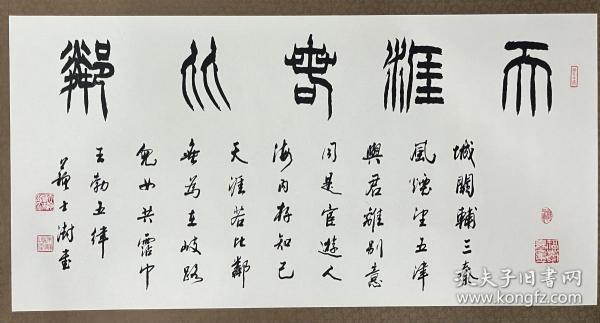 天涯若比鄰
城闕輔三秦
風煙望五津
與君離別意
同是宦遊人
海内存知己
天涯若比鄰
無為在歧路
兒女共霑巾
王勃五律
蘇士澍書
孔夫子旧书网
www.kongfz.com